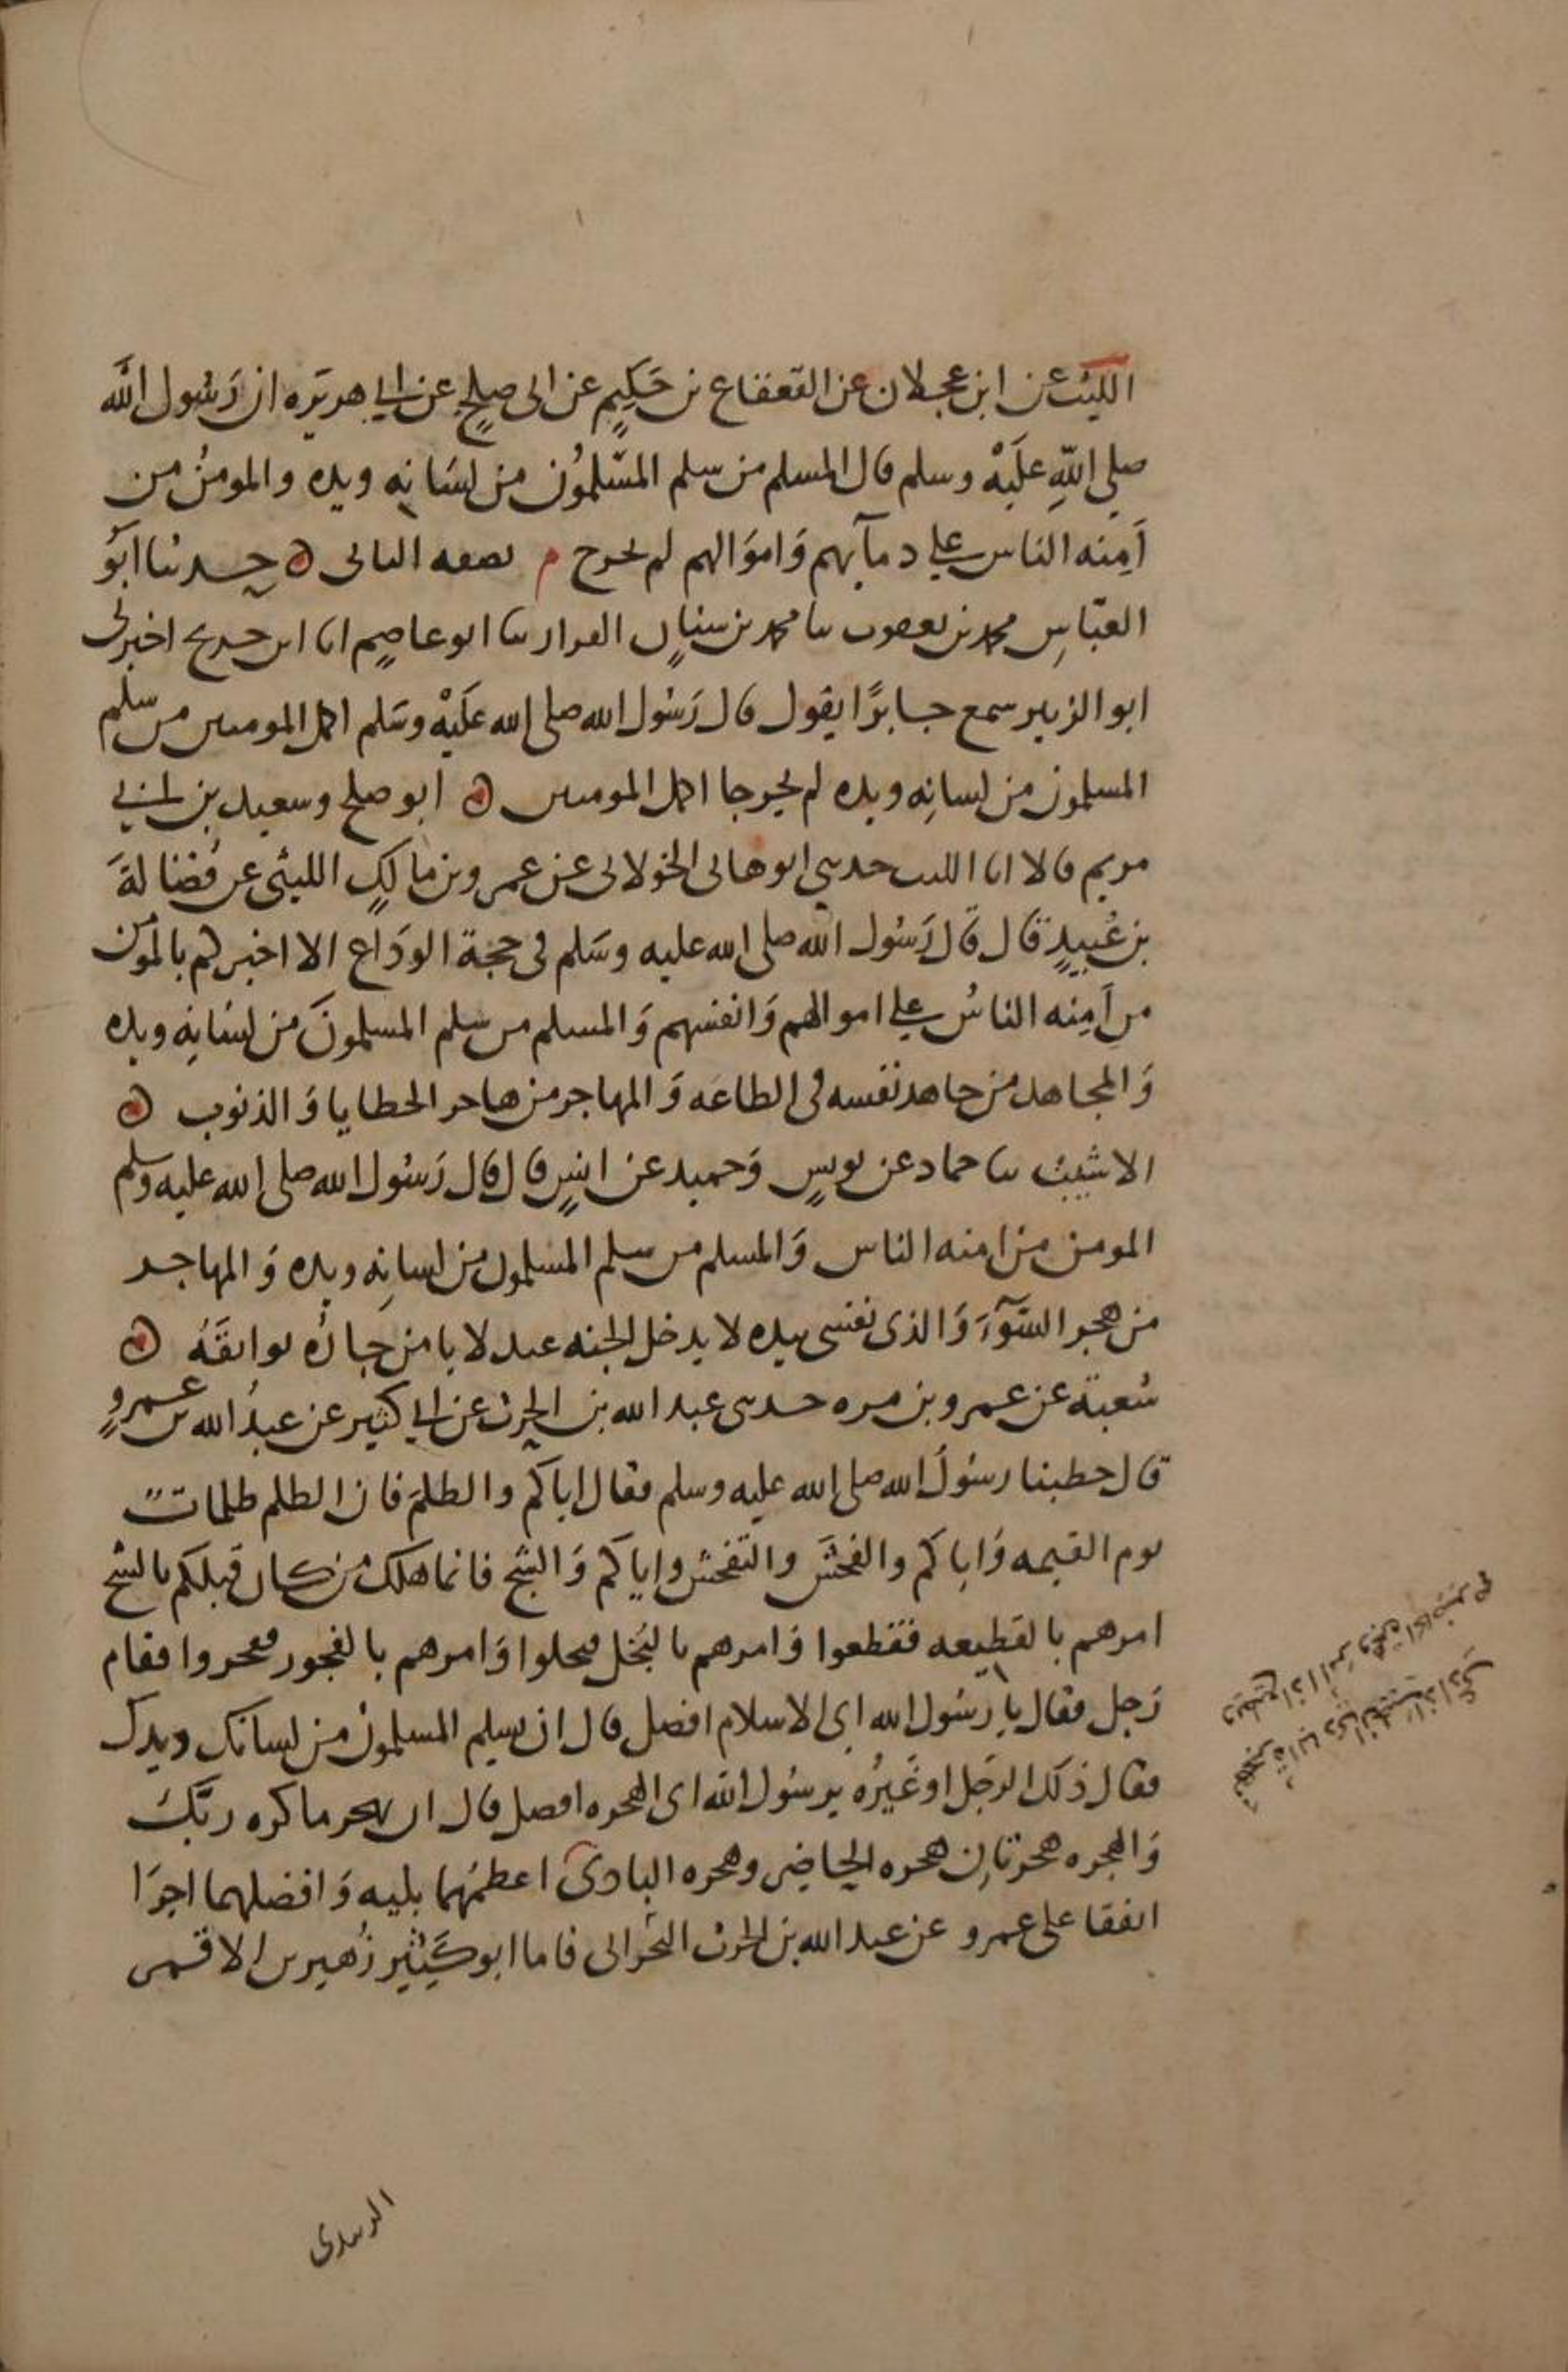 الليث عن ابن عجلان عن القعقاع بن حكيم عن ابى صلح عن ابي هريره ان رسول الله
صلى الله عليه وسلم قال المسلم من سلم المسلمون من لسانه ويده والمومن من
امنه الناس على دمآيهم واموالهم لم يخرج م نصفه الثانى حدثنا ابو
العباس محمد بن يعقوب ثنا محمد بن سنان القزاز ثنا ابو عاصم انا ابن جريج اخبرنى
ابو الزبير سمع جابرًا يقول قال رسول الله صلى الله عليه وسلم اكمل المومنين من سلم
المسلمون من لسانه ويده لم يخرجا اكمل المومنين ابو صلح وسعيد بن ابي
مريم قالا انا الليث حدثني ابو هانى الخولانى عن عمرو بن مالك الليثى عن فضالة
بن عبيد قال قال رسول الله صلى الله عليه وسلم فى حجة الوداع الا اخبركم بالمومن
من امنه الناس على اموالهم وانفسهم والمسلم من سلم المسلمون من لسانه ويده
والمجاهد من جاهد نفسه فى الطاعه والمهاجر من هاجر الخطايا والذنوب
الاشيب ثنا حماد عن يونس وحميد عن انس قال قال رسول الله صلى الله عليه وسلم
المومن من امنه الناس والمسلم من سلم المسلمون من لسانه ويده والمهاجر
من هجر السوء والذى نفسى بيده لا يدخل الجنه عبد لا يامن جاره بوايقه
شعبة عن عمرو بن مره حدثنى عبد الله بن الحرث عن ابي كثير عن عبد الله بن عمرو
قال خطبنا رسول الله صلى الله عليه وسلم فقال اياكم والظلم فان الظلم ظلمات
يوم القيمه واياكم والفحش والتفحش واياكم والشح فانما هلك من كان قبلكم بالشح
امرهم بالقطيعه فقطعوا وامرهم بالبخل فبخلوا وامرهم بالفجور ففجروا فقام
رجل فقال يا رسول الله اى الاسلام افضل قال ان يسلم المسلمون من لسانك ويدك
فقال ذلك الرجل او غيره يرسول الله اى الهجره افضل قال ان تهجر ما كره ربك
والهجره هجرتان هجره الحاضر وهجره البادى اعظمهما بليه وافضلهما اجرا
اتفقا على عمرو عن عبد الله بن الحرث النجرانى فاما ابو كثير زهير بن الاقمر
الزبيدى